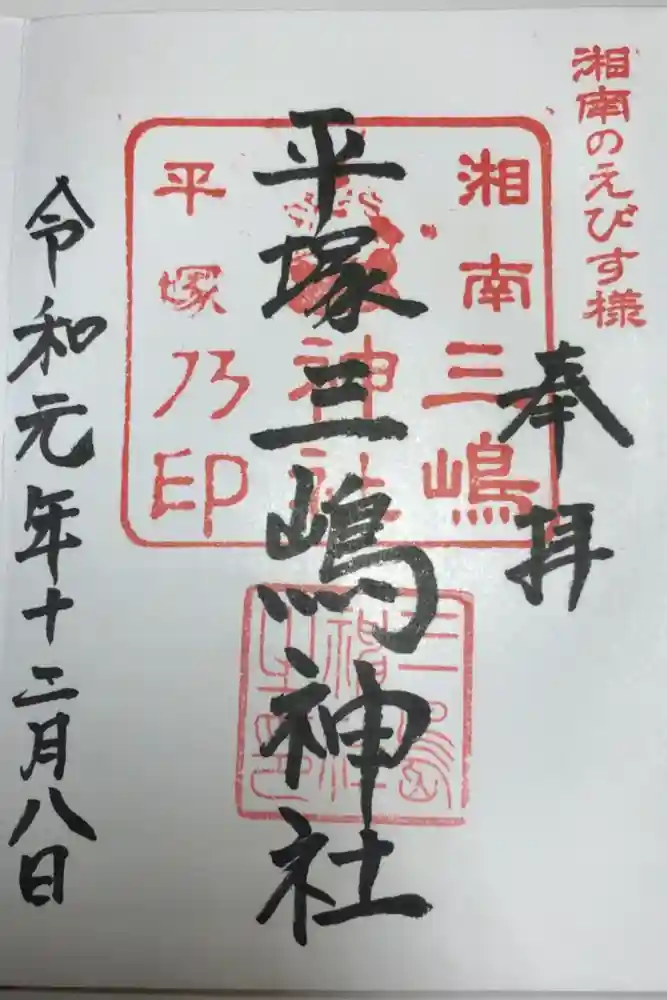 湘南のえびす様
奉拝
湘南三嶋
神社
平塚乃印
平塚三嶋神社
令和元年十二月八日